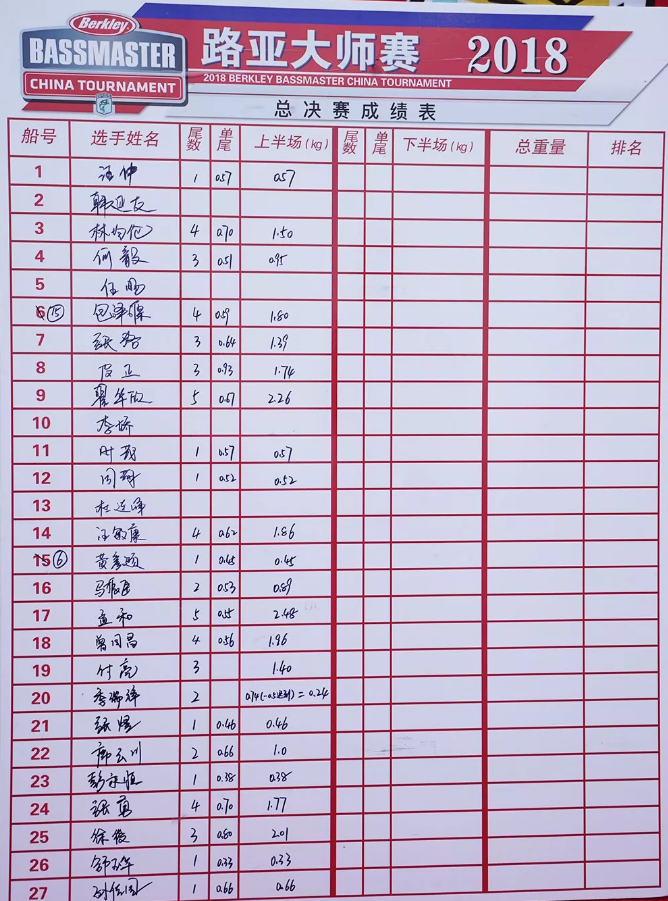 Berkley
BASSMASTER
CHINA TOURNAMENT
路亚大师赛 2018
2018 BERKLEY BASSMASTER CHINA TOURNAMENT
总决赛成绩表
船号 选手姓名 尾数 单尾 上半场(kg) 尾数 单尾 下半场(kg) 总重量 排名
1 汪伸 1 0.57 0.57
2
3 4 0.70 1.50
4 何毅 3 0.51 0.95
5
6 ⑮ 4 0.59 1.80
7 3 0.64 1.39
8 段正 3 0.93 1.74
9 5 0.67 2.26
10 李娇
11 1 0.57 0.57
12 1 0.52 0.52
13 杜连峰
14 汪敏康 4 0.62 1.86
15 ⑥ 1 0.45 0.45
16 2 0.53 0.89
17 孟和 5 0.55 2.48
18 曾同昌 4 0.56 1.96
19 付亮 3 1.40
20 季瑞祥 2 0.74(-0.5迟到) = 0.24
21 张煜 1 0.46 0.46
22 2 0.66 1.0
23 1 0.38 0.38
24 张勇 4 0.70 1.77
25 徐俊 3 0.80 2.01
26 1 0.33 0.33
27 1 0.66 0.66